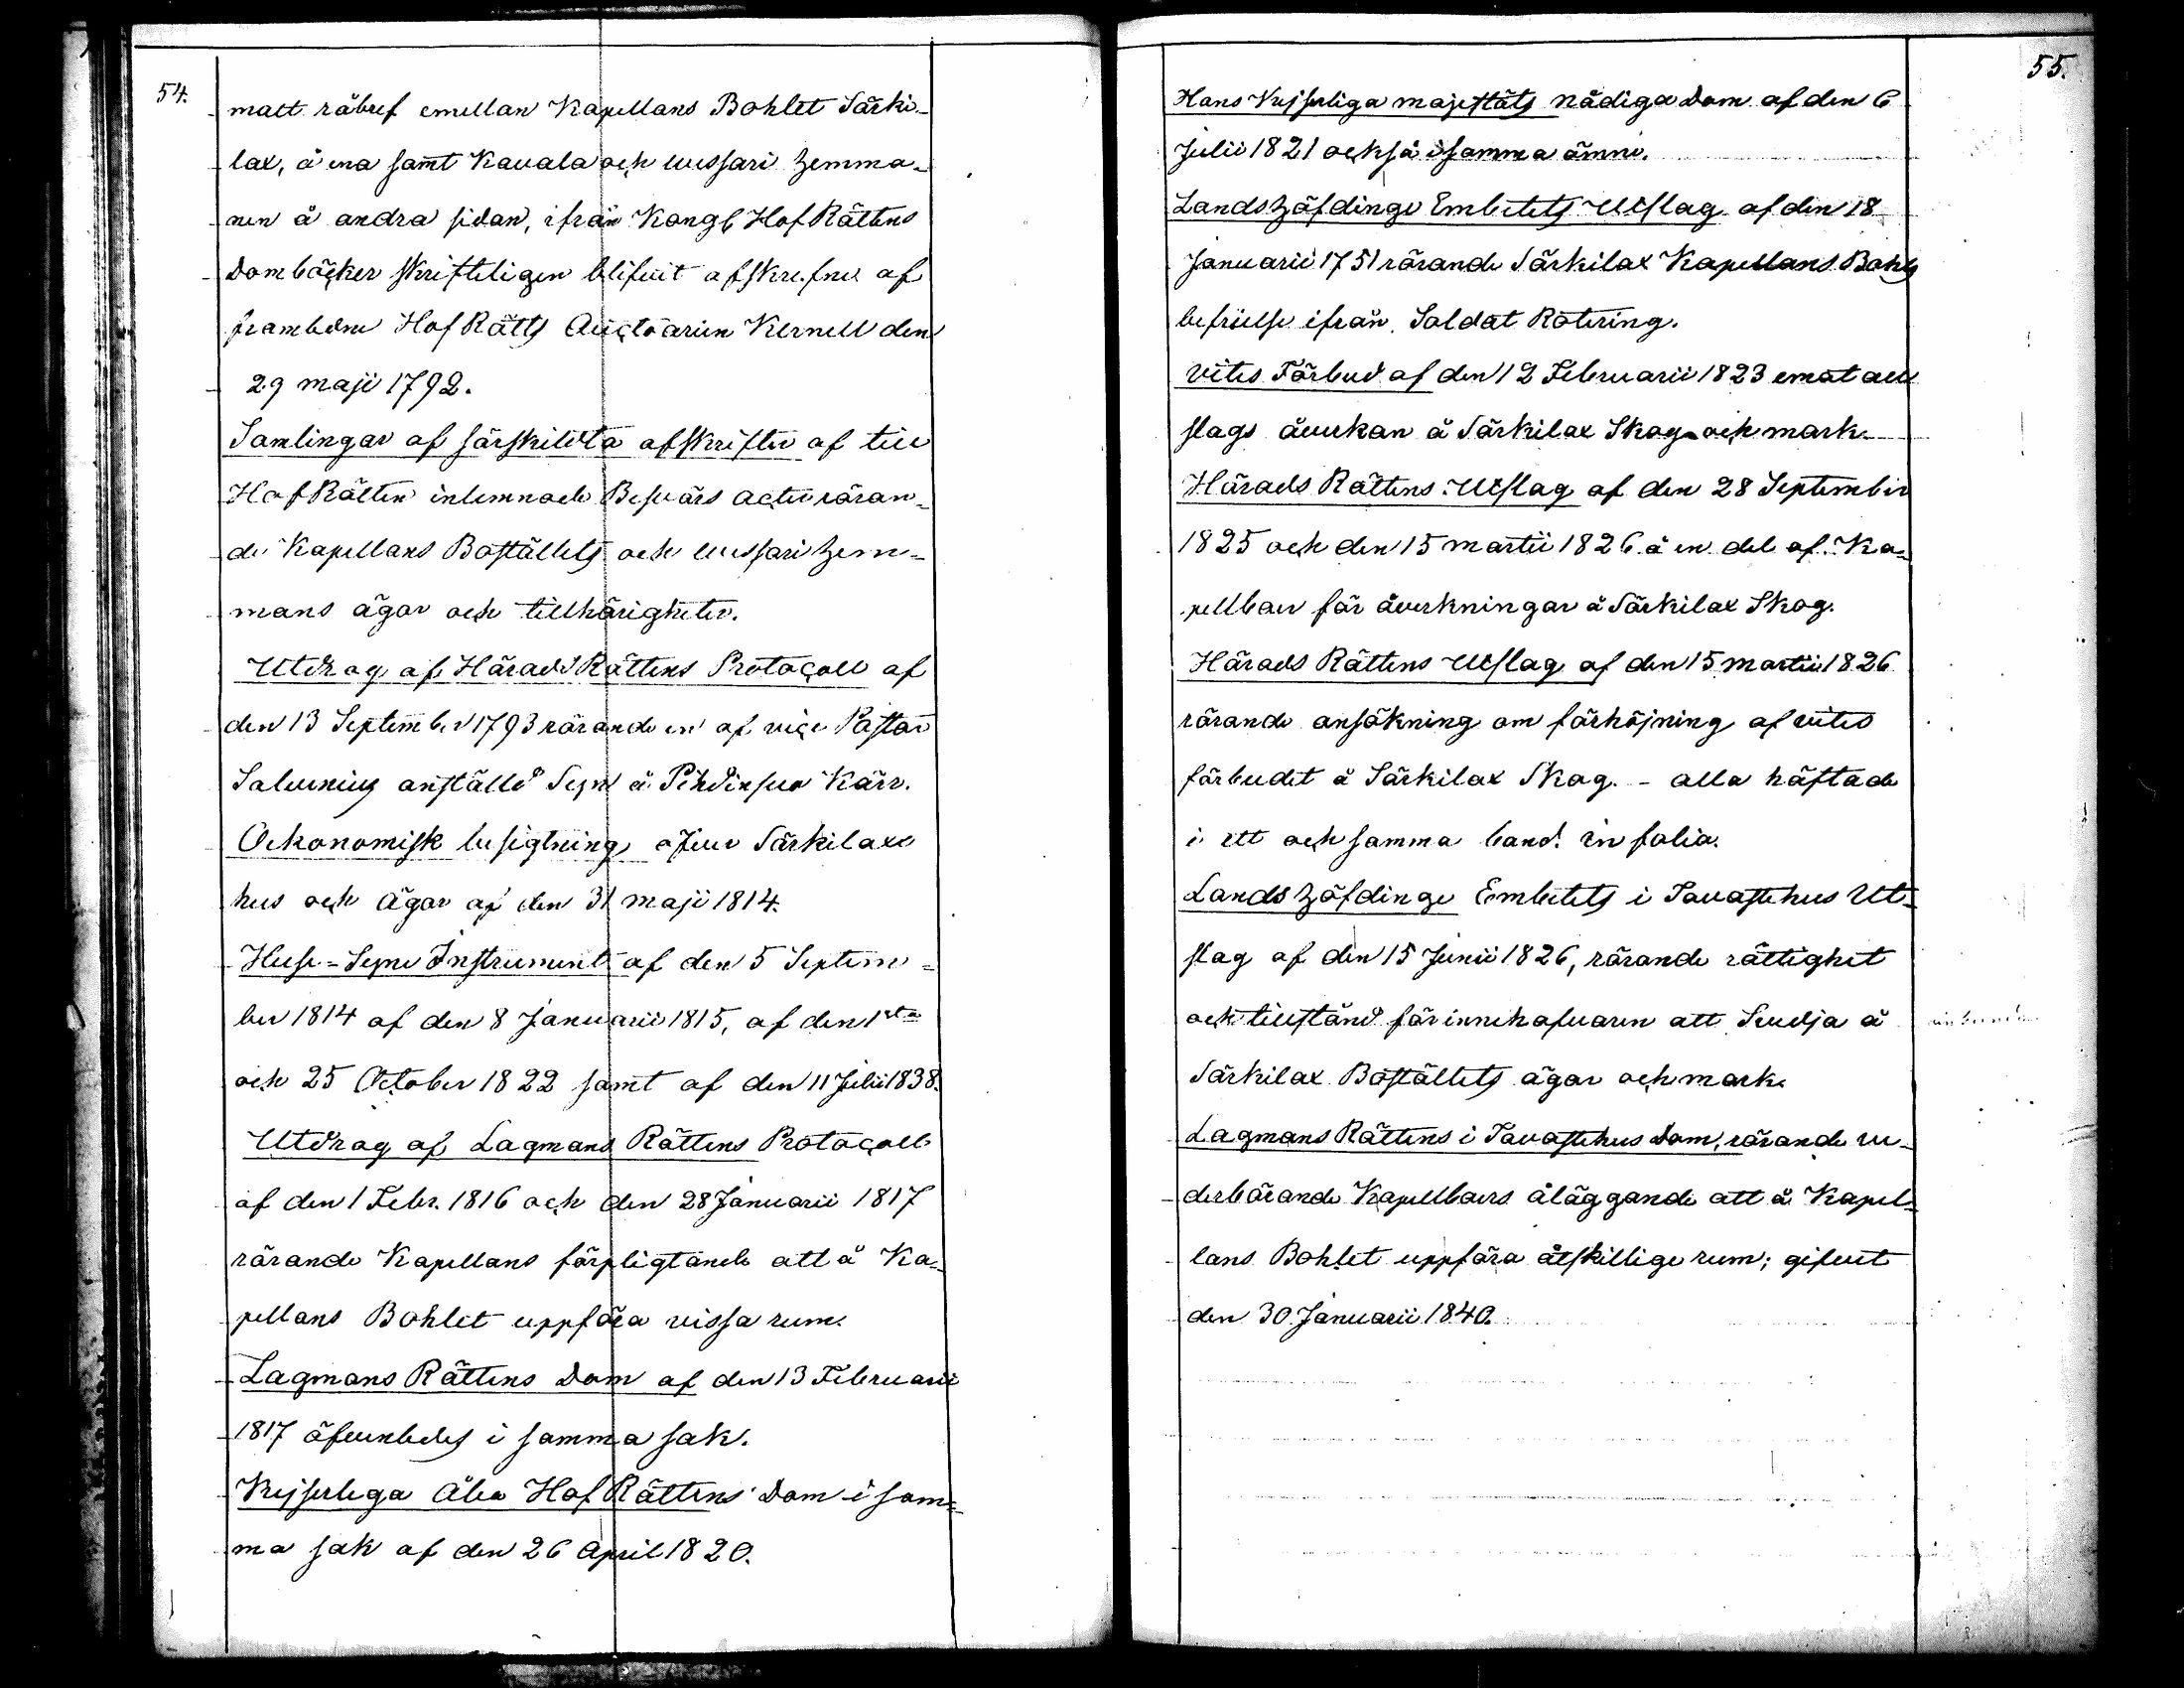 54.
matt råbref emellan Kapellans Bohlet Särki-
lax, å ena samt Kauala och uussari Hemma-
nen å andra sidan, ifrån Kongl HofRättens
Domböcker skrifteligen blifvit afskrefne af
frambedne HofRätts Auctoarien Kernell den
29 maji 1792.
Samlingar af särskildta afskrifter af till
HofRätten inlemnade Besvärs acter röran-
de Kapellans Boställets och uussari Hem-
mans ägor och tillhörigheter.
Utdrag af HäradsRättens Protocoll af
den 13 September 1793 rörande en af vice Pastor
Salvenius anställd Syn å Kärr.
Oekonomisk besigtning öfver Särkilax
hus och Ägor af den 31 maji 1814.
Huse-Syne Instrument af den 5 Septem-
ber 1814 af den 8 Januarii 1815, af den 1sta
och 25 October 1822 samt af den 11 Julii 1838.
Utdrag af Lagmans Rättens Protocoll
af den 1 Febr. 1816 och den 28 Januarii 1817
rörande Kapellans förpligtande att å Ka-
pellans Bohlet uppföra vissa rum.
Lagmans Rättens Dom af den 13 Februarii
1817 öfvenledes i samma sak.
Kejserliga Åbo HofRättens Dom i sam-
ma sak af den 26 April 1820.
55.
Hans Kejserliga majestäts nådiga Dom af den 6
Julii 1821 också i samma ämne.
Landshöfdinge Embetets Utslag af den 18
Januarii 1751 rörande Särkilax Kapellans Bohls
befrielse ifrån Soldat Rotering.
vites Förbud af den 12 Februarii 1823 emot all
slags åverkan å Särkilax Skog och mark.
Härads Rättens Utslag af den 28 September
1825 och den 15 martii 1826 å en del af Ka-
pellboer för åverkningar å Särkilax Skog.
Härads Rättens Utslag af den 15 martii 1826
rörande ansökning om förhöjning af vites
förbudet å Särkilax Skog. - alla häftade
i ett och samma band in folio.
Landshöfdinge Embetets i Tavastehus Ut-
slag af den 15 Junii 1826, rörande rättighet
och tillstånd för innehafvaren att Svedja å
Särkilax Boställets ägor och mark.
Lagmans Rättens i Tavastehus Dom, rörande ve-
derbörande Kapellboers åläggande att å Kapel-
lans Bohlet uppföra åtskillige rum; gifvit
den 30 Januarii 1840.